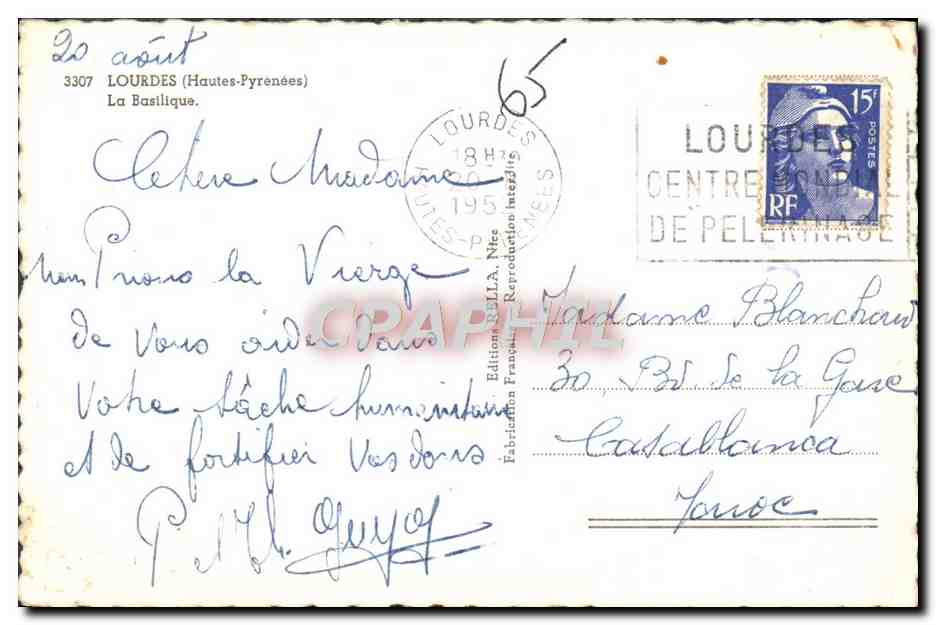 20 août
3307 LOURDES (Hautes-Pyrénées)
La Basilique.
65
LOURDES
18 H
20
195
HAUTES-PYRENEES
LOURDES
CENTRE MONDIAL
DE PELERINAGE
15F
POSTES
RF
Chère Madame
Nous Prions la Vierge
de vous aider dans
votre tâche humanitaire
et de fortifier vos dons
P. et Th. Guyot
Editions RELLA, Nice
Fabrication Française Reproduction interdite
CPAPHIL
Madame Blanchard
30, Bd. de la Gare
Casablanca
Maroc